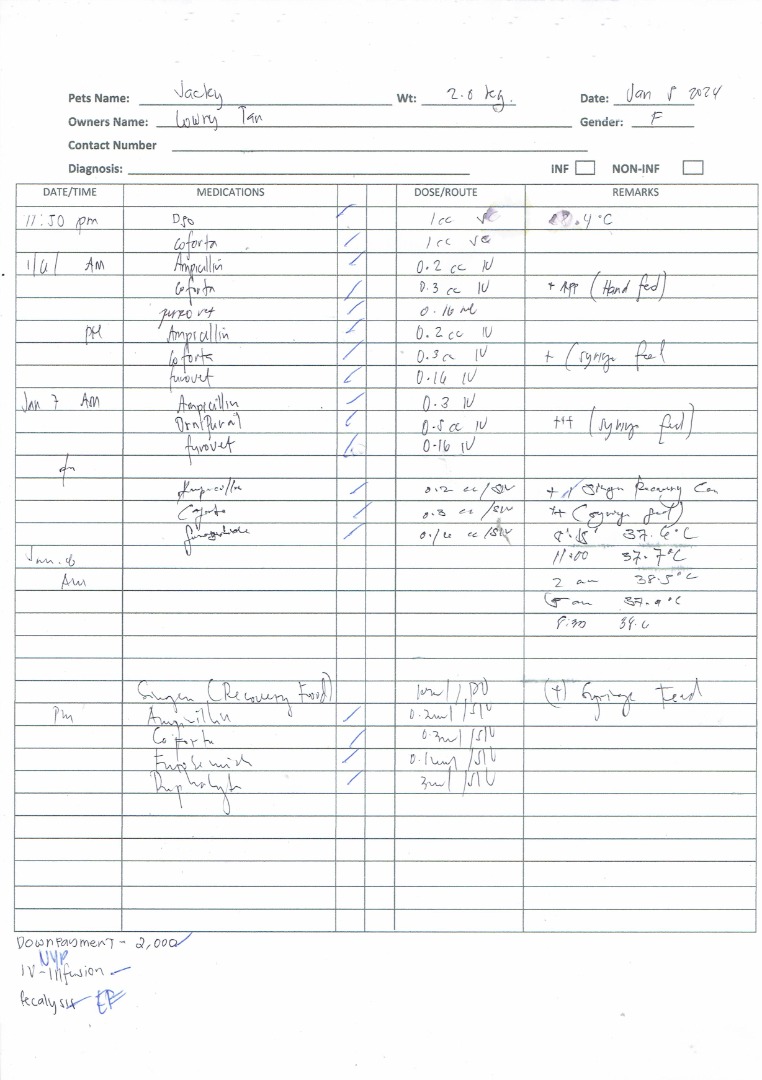 Pets Name: Jacky Wt: 2.0 kg. Date: Jan 5 2024
Owners Name: Lowry Tan Gender: F
Contact Number
Diagnosis: INF NON-INF
DATE/TIME MEDICATIONS DOSE/ROUTE REMARKS
11:50 pm D50 1cc .4°C
Coforta 1cc
1/6/ AM Ampicillin 0.2 cc IV
Coforta 0.3 cc IV + App (Hand fed)
furovet 0.16 ml
PM Ampicillin 0.2 cc IV
Coforta 0.3 IV + (syringe
furovet 0.16 IV
Jan 7 AM Ampicillin 0.3 IV
0.5 cc IV +++ (syringe fed)
furovet 0.16 IV
Ampicillin 0.2 cc/SIV + Recovery Can
Coforta 0.3 cc/SIV ++ (syringe
0.16 cc/SIV 37.6°C
Jan. 8 11:00 37.7°C
Am 2 am 38.5°C
5 am 37.9°C
8:30
(Recovery Food) 10ml / PO (+) Syringe Feed
Pm Ampicillin 0.2ml /SIV
Coforta 0.3ml /SIV
Furosemide /SIV
Duphalyte 3ml /SIV
DOWNPAYMENT - 2,000
NYP
IV-Infusion
Fecalysis